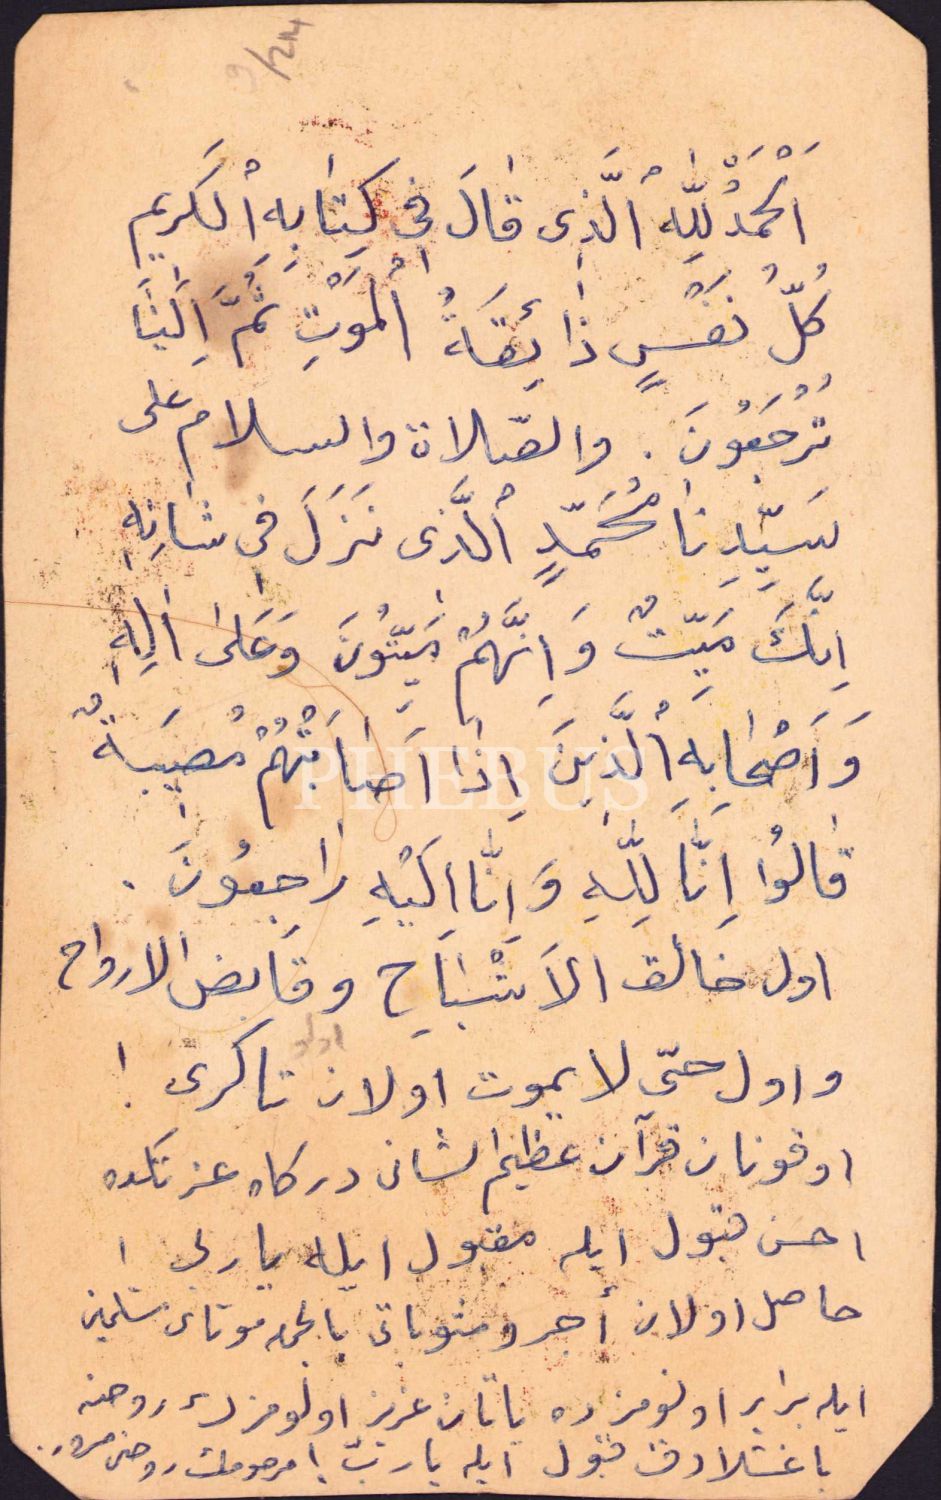 اَلْحَمْدُ لِلّٰهِ الَّذى قٰالَ فِى كِتٰابِهِ الْكَريم
كُلُّ نَفْسٍ ذٰائِقَةُ الْمَوْتِ ثُمَّ اِلَيْنَا
تُرْجَعُونَ . والصّلاة والسلام على
سَيِّدِنٰا مُحَمَّدٍ الَّذى نَزَلَ فى شٰانِهِ
اِنَّكَ مَيِّتٌ وَ اِنَّهُمْ مَيِّتُونَ وَعَلىٰ اٰلِهِ
وَ اَصْحٰابِهِ الَّذينَ اِذٰا اَصٰابَتْهُمْ مُصيبَةٌ
PHEBUS
قٰالُوا اِنّٰا لِلّٰهِ وَ اِنّٰا اِلَيْهِ رٰاجِعُونَ .
اول خالق الاَشْبٰاحِ وقابض الارواح
و اول حىّ لا يموت اولان تاكرى !
اوقونان قرآن عظيم الشانى دركاه عزتكده
احسن قبول ايله مقبول ايله يا ربى !
حاصل اولان أجر و مثوباتى بالجمله موتاى مسلمين
ايله برابر اوكومزده ياتان عزيز اولومزك روحنه
باغشلادق قبول ايله يا ربّ ! مرحومك روحنى